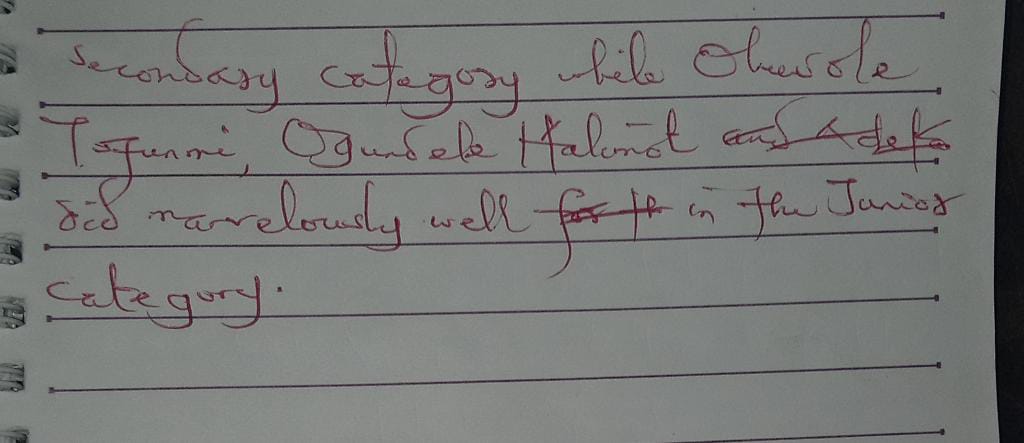 secondary category while Oluwole
Tofunmi, Ogundele Halimot and Adek
did marvelously well for th in the Junior
category.